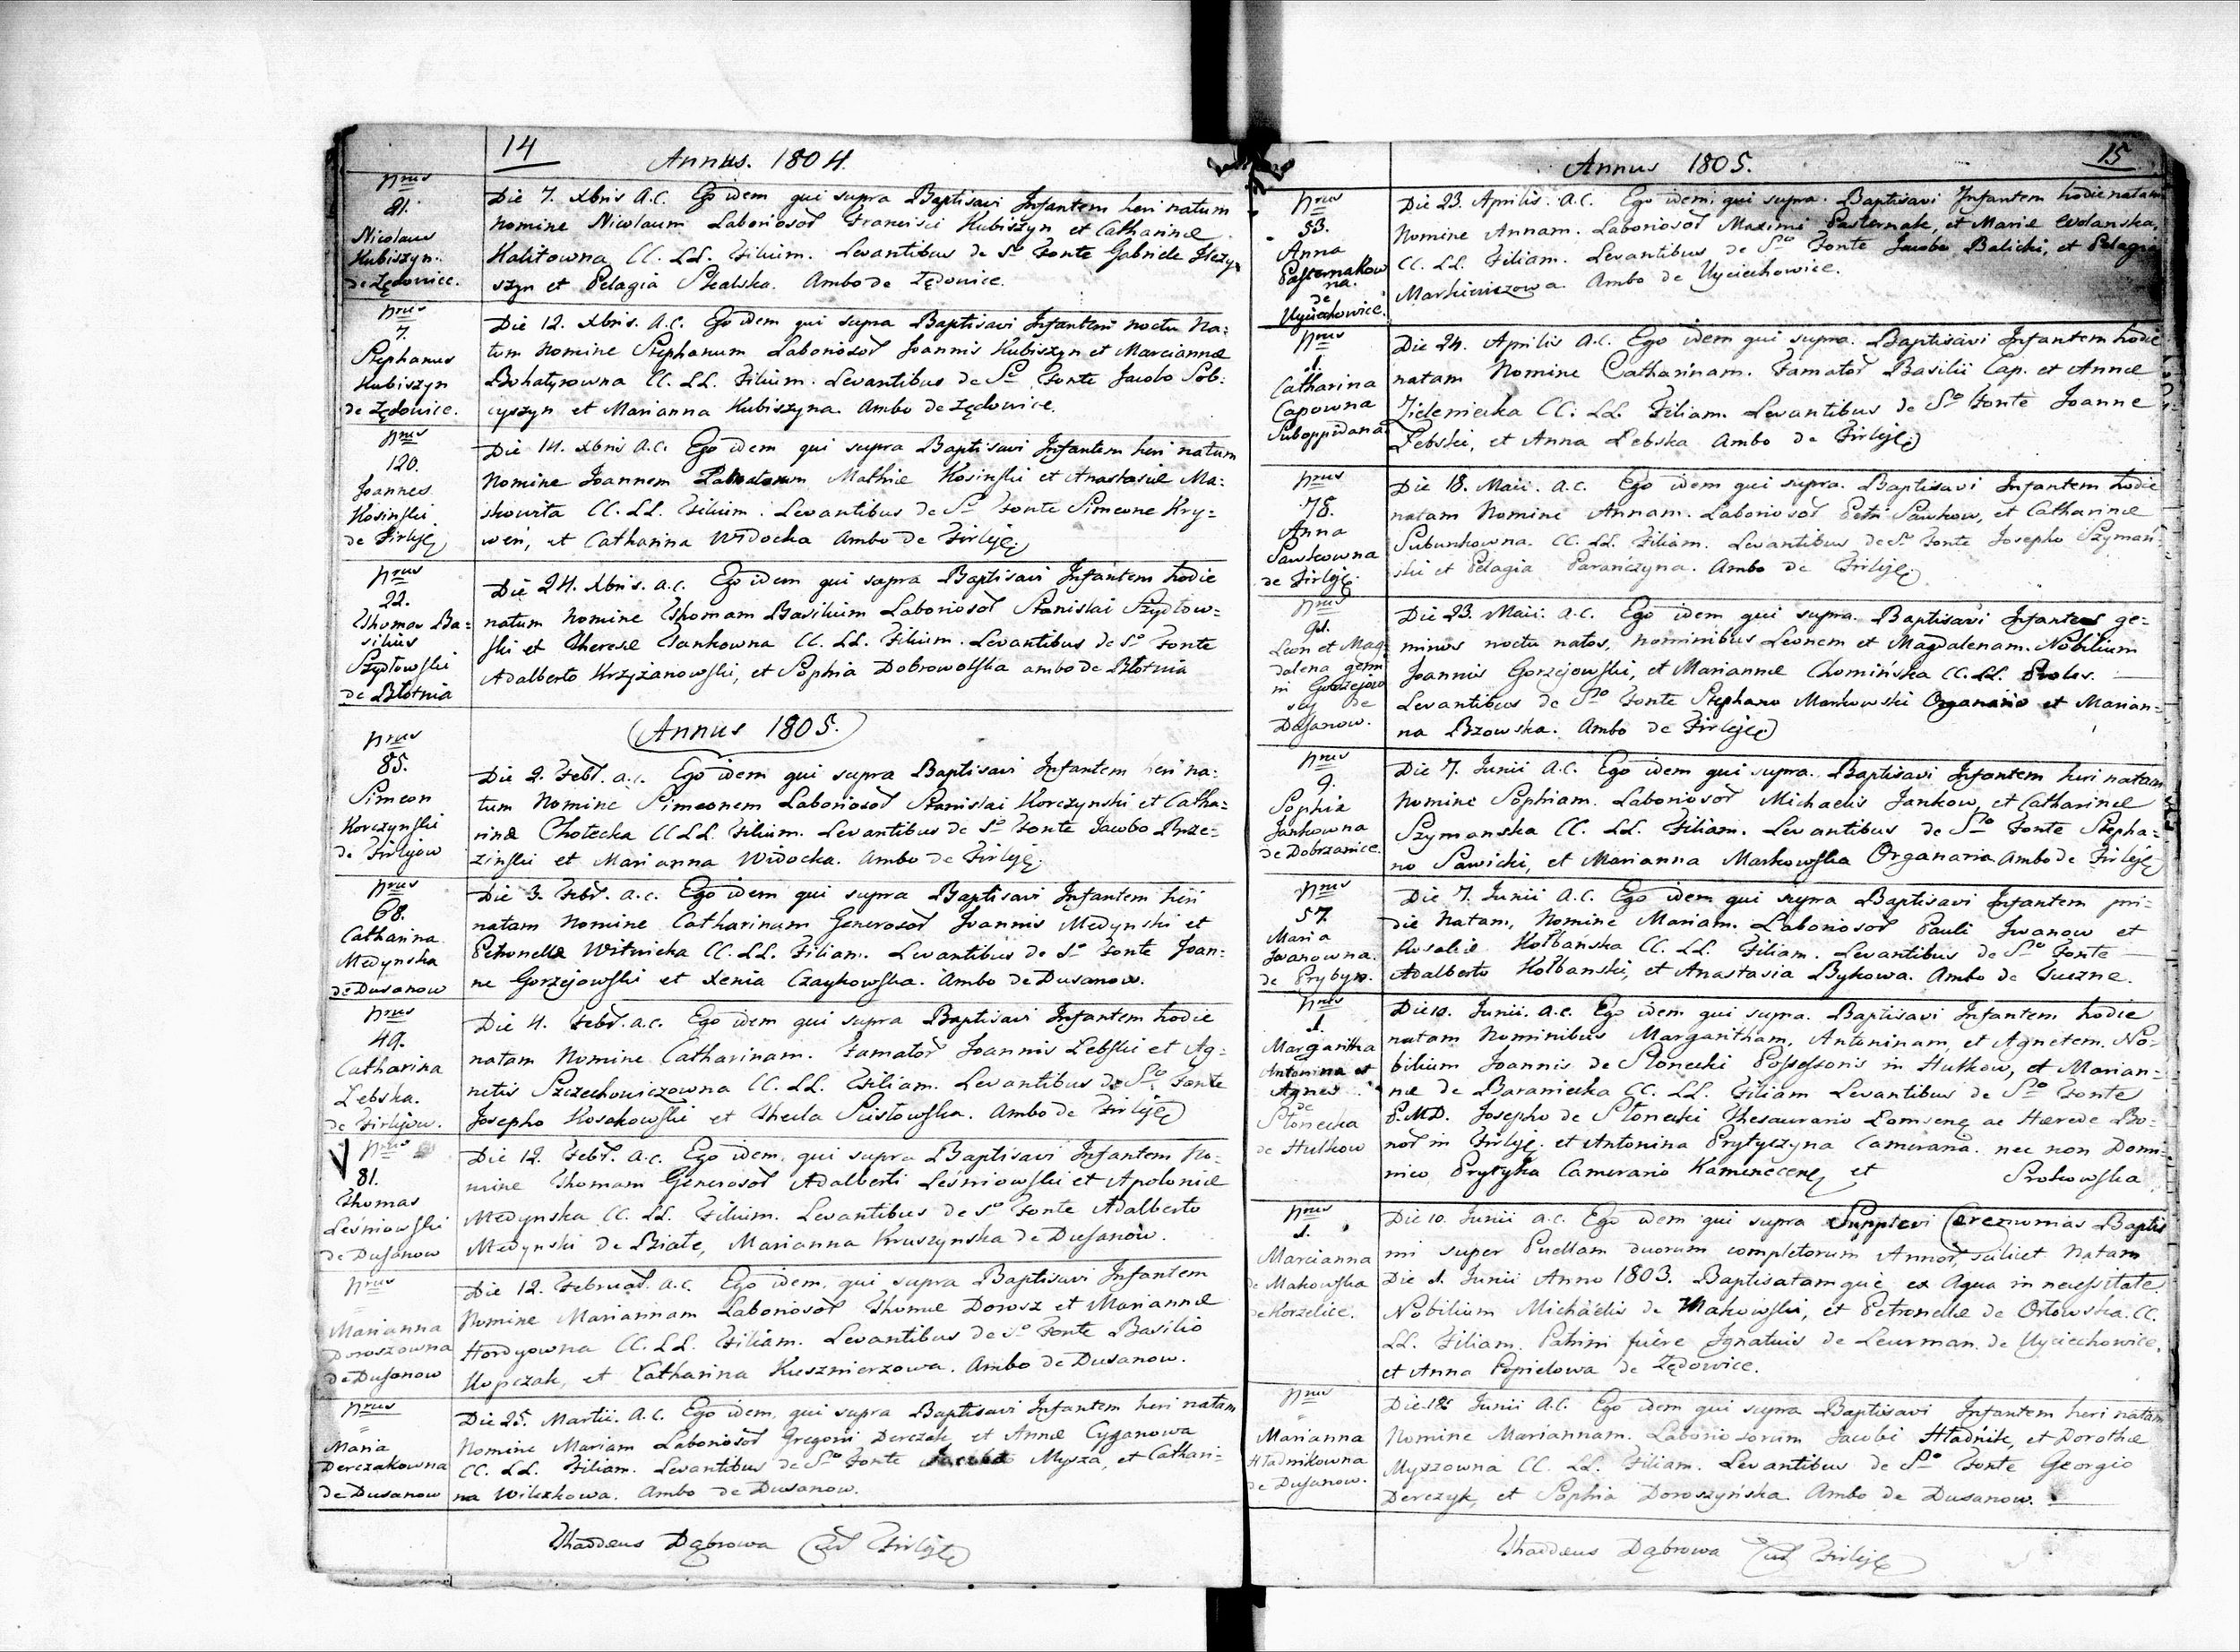 14
Annus. 1804.
Nrus
81.
Nicolaus
Kubiszyn.
de Zędowice.
Die 7. Xbris a.c. Ego idem qui supra Baptisavi Infantem heri natum
Nomine Nicolaum Laboriosor Francisci Kubiszyn et Catharinæ
Halitowna CC. LL. Filium. Levantibus de So Fonte Gabriele
szyn et Pelagia Skalska. Ambo de Zędowice.
Nrus
7.
Stephanus
Kubiszyn
de Zędowice.
Die 12. Xbris. a.c. Ego idem qui supra Baptisavi Infantem noctu Na=
tum Nomine Stephanum Laboriosor Joannis Kubiszyn et Mariannæ
Bohatyrowna CC. LL. Filium. Levantibus de So Fonte Jacobo Sob=
cyszyn et Marianna Kubiszyna. Ambo de Zędowice.
Nrus
120.
Joannes
Kosinski
de Firleję
Die 14. Xbris a.c. Ego idem qui supra Baptisavi Infantem heri natum
Nomine Joannem Mathiæ Kosinski et Anastasiæ Ma=
skowita CC. LL. Filium. Levantibus de So Fonte Simeone Kry=
wen, et Catharina Widocka Ambo de Firleję.
Nrus
22.
Thomas Ba=
silius
Szydłowski
de Błotnia
Die 24. Xbris. a.c. Ego idem qui supra Baptisavi Infantem hodie
natum Nomine Thomam Basilium Laboriosor Stanislai Szydłow=
ski et Theresæ Jankowna CC. LL. Filium. Levantibus de So Fonte
Adalberto Krzyżanowski, et Sophia Dobrowolska ambo de Błotnia
Annus 1805.
Nrus
85.
Simeon
Korczynski
de Firlijow
Die 2. Febr. a.c. Ego idem qui supra Baptisavi Infantem heri na=
tum Nomine Simeonem Laboriosor Stanislai Korczynski et Catha=
rinæ Chotecka CC LL Filium. Levantibus de So Fonte Jacobo Brze=
zinski et Marianna Widocka. Ambo de Firleję.
Nrus
68.
Catharina
Medynska
de Dusanow
Die 3. Febr. a.c. Ego idem qui supra Baptisavi Infantem heri
natam Nomine Catharinam Generosor Joannis Medynski et
Petronellæ Witwicka CC. LL. Filiam. Levantibus de So Fonte Joan=
ne Gorzejowski et Xenia Czaykowska. Ambo de Dusanow.
Nrus
49.
Catharina
Zebska.
de Firlijow.
Die 4. Febr. a.c. Ego idem qui supra Baptisavi Infantem hodie
natam Nomine Catharinam. Famator Joannis Zebski et Ag=
netis Szczechowiczowna CC. LL. Filiam. Levantibus de Sto. Fonte
Josepho Kosakowski et Thecla Scisłowska. Ambo de Firleję
Nrus
81.
Thomas
Leśniowski
de Dusanow
Die 12. Febr. a.c. Ego idem, qui supra Baptisavi Infantem No=
mine Thomam Generosor Adalberti Leśniowski et Apoloniæ
Medynska CC. LL. Filium. Levantibus de So Fonte Adalberto
Medynski de Białe, Marianna Kruszynska de Dusanow.
Nrus
Marianna
Doroszowna
de Dusanow
Die 12. Februar. a.c. Ego idem, qui supra Baptisavi Infantem
Nomine Mariannam Laboriosor Thomæ Dorosz et Mariannæ
Hordyowna CC. LL. Filiam. Levantibus de So Fonte Basilio
Kopczak, et Catharina Kuszmierzowa. Ambo de Dusanow.
Nrus
Maria
Derczakowna
de Dusanow
Die 25. Martii. a.c. Ego idem, qui supra Baptisavi Infantem heri natam
Nomine Mariam Laboriosor Gregorii Derczak et Annæ Cyganowa
CC. LL. Filiam. Levantibus de Sto Fonte Mysza, et Cathari=
na Wilczkowa. Ambo de Dusanow.
Thaddeus Dąbrowa Cur Firleję
15
Annus 1805.
Nrus
53.
Anna
Pasternakow
na.
de
Uyciechowice.
Die 23. Aprilis. a.c. Ego idem qui supra. Baptisavi Infantem hodie natam
Nomine Annam. Laboriosor Maximi Pasternak, et Mariæ Wolanska,
CC. LL. Filiam. Levantibus de Sto Fonte Jacobo Balicki, et Pelagia
Markiewiczowa. Ambo de Uyciechowice.
Nrus
1.
Catharina
Capowna
Suboppidana
Die 24. Aprilis a.c. Ego idem qui supra. Baptisavi Infantem hodie
natam Nomine Catharinam. Famator Basilii Cap. et Annæ
Zieleniecka CC. LL. Filiam. Levantibus de Sto Fonte Joanne
Zebski, et Anna Zebska Ambo de Firleję
Nrus
78.
Anna
Sawkowna
de Firleję.
Die 18. Maii. a.c. Ego idem qui supra. Baptisavi Infantem hodie
natam Nomine Annam. Laboriosor Petri Sawkow, et Catharinæ
Subunkowna. CC. LL. Filiam. Levantibus de So Fonte Josepho Szymań=
ski et Pelagia Parańczyna. Ambo de Firleję.
Nrus
91.
Leon et Mag=
dalena gemi
ni Gorzejow
scy de
Dusanow.
Die 23. Maii. a.c. Ego idem qui supra. Baptisavi Infantes ge=
minos noctu natos, nominibus Leonem et Magdalenam. Nobilium
Joannis Gorzejowski, et Mariannæ Chomińska CC. LL. Proles.
Levantibus de Sto Fonte Stephano Markowski Organario et Marian=
na Bzowska. Ambo de Firleję
Nrus
9.
Sophia
Jankowna
de Dobrzanice.
Die 7. Junii a.c. Ego idem qui supra. Baptisavi Infantem heri natam
Nomine Sophiam. Laboriosor Michaelis Jankow, et Catharinæ
Szymanska CC. LL. Filiam. Levantibus de Sto Fonte Stepha=
no Sawicki, et Marianna Markowska Organaria. Ambo de Firleję
Nrus
57.
Maria
Iwanowna.
de Prybyn.
Die 7. Junii a.c. Ego idem qui supra Baptisavi Infantem pri=
die Natam, Nomine Mariam. Laboriosor Pauli Iwanow et
Rosaliæ Kołbańska CC. LL. Filiam. Levantibus de Sto Fonte
Adalberto Kołbanski, et Anastasia Bykowa. Ambo de Tuczne.
Nrus
1.
Margaritha
Antonina et
Agnes
de
Słonecka
de Hulkow
Die 10. Junii. a.c. Ego idem qui supra. Baptisavi Infantem hodie
natam Nominibus Margaritham, Antoninam, et Agnetem. No=
bilium Joannis de Słonecki Possessoris in Hulkow, et Marian=
næ de Baraniecka CC. LL. Filiam Levantibus de Sto Fonte
P.MD. Josepho de Słonecki Thesaurario Łomsenę ac Hærede Bo=
nor in Firleję. et Antonina Prytyczyna Camerana. nec non Domi=
nico Prytyka Camerario Kamenecenę et Srokowska
Nrus
1.
Marcianna
de Makowska
de Korzelice.
Die 10. Junii a.c. Ego idem qui supra Supplevi Ceremonias Baptis
mi super Puellam duorum completorum Annor, scilicet Natam
Die 1. Junii Anno 1803. Baptisatamque ex Aqua in necessitate.
Nobilium Michaëlis de Makowski, et Petronellæ de Orłowska. CC.
LL. Filiam. Patrini fuêre Ignatius de Leurman. de Uyciechowice,
et Anna Popielowa de Zędowice.
Nrus
Marianna
Hładnikowna
de Dusanow.
Die 18 Junii a.c. Ego idem qui supra Baptisavi Infantem heri natam
Nomine Mariannam. Laboriosorum Jacobi Hładnik, et Dorotheæ
Myszowna CC. LL. Filiam. Levantibus de Sto Fonte Georgio
Derczyk, et Sophia Doroszyńska. Ambo de Dusanow.
Thaddeus Dąbrowa Cur Firleję